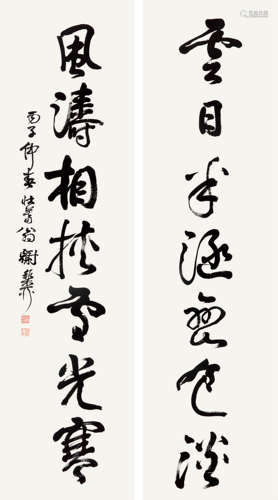 雲日半涵巒色
風濤相挾雪光寒
丙子仲春壯暮翁謝稚柳